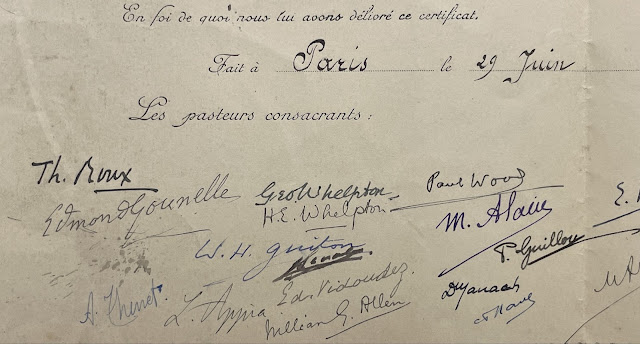 En foi de quoi nous lui avons délivré ce certificat.
Fait à Paris le 29 Juin
Les pasteurs consacrants :
Th. Roux
Edmond Gounelle
Geo Whelpton
H. E. Whelpton
Paul Wood
M. Alain
E.
W. H. Guiton
P. Guillou
A. Thenot.
L. Appia
Ed. Vidoudez
William G. Allen